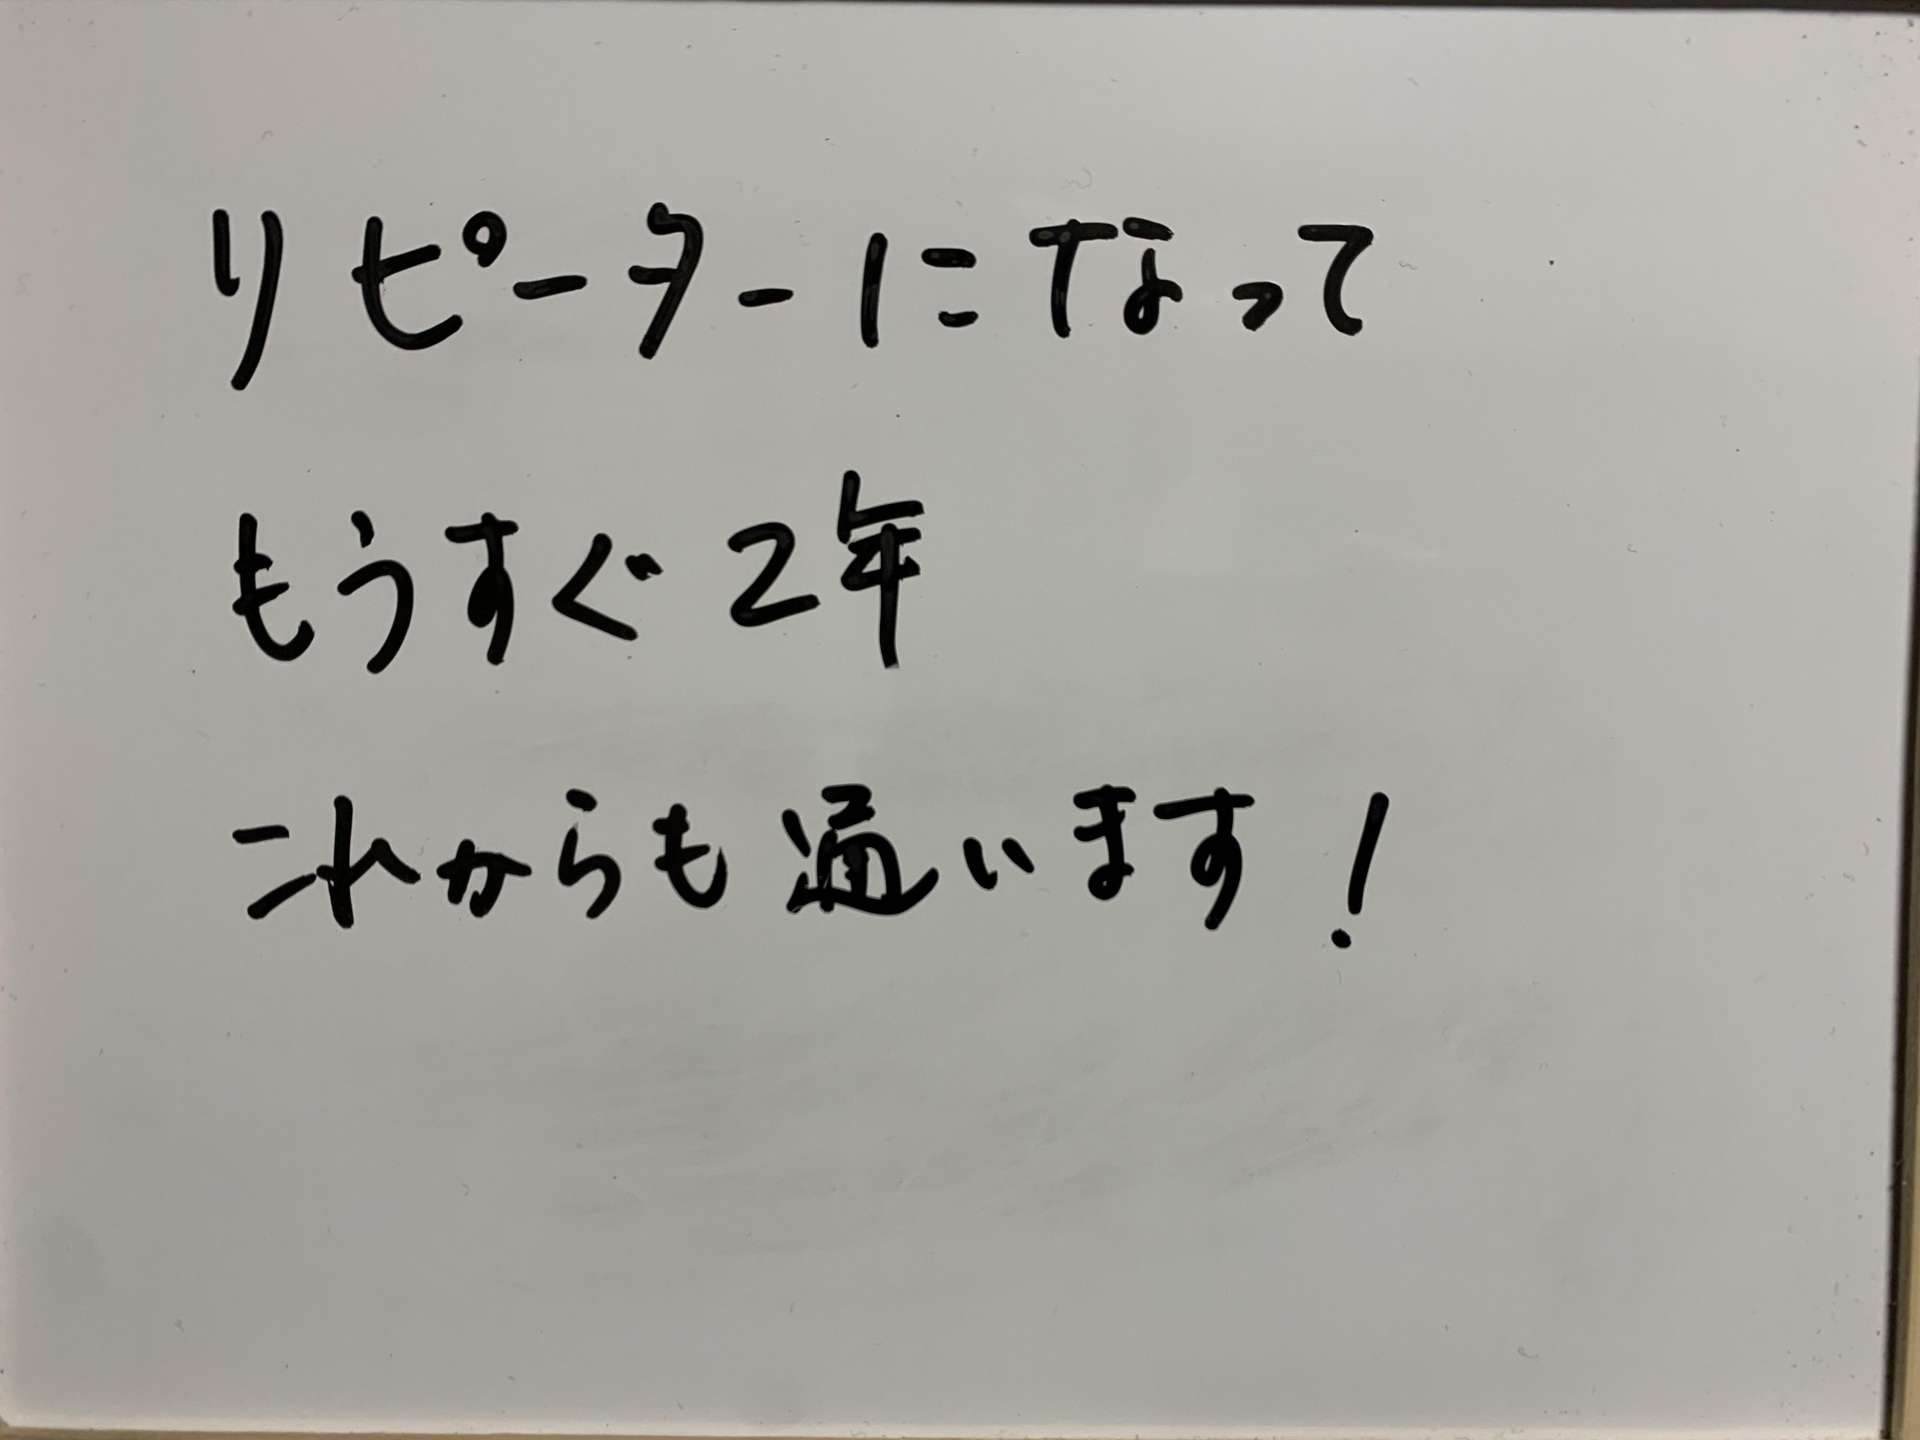 リピーターになって
もうすぐ2年
これからも通います!